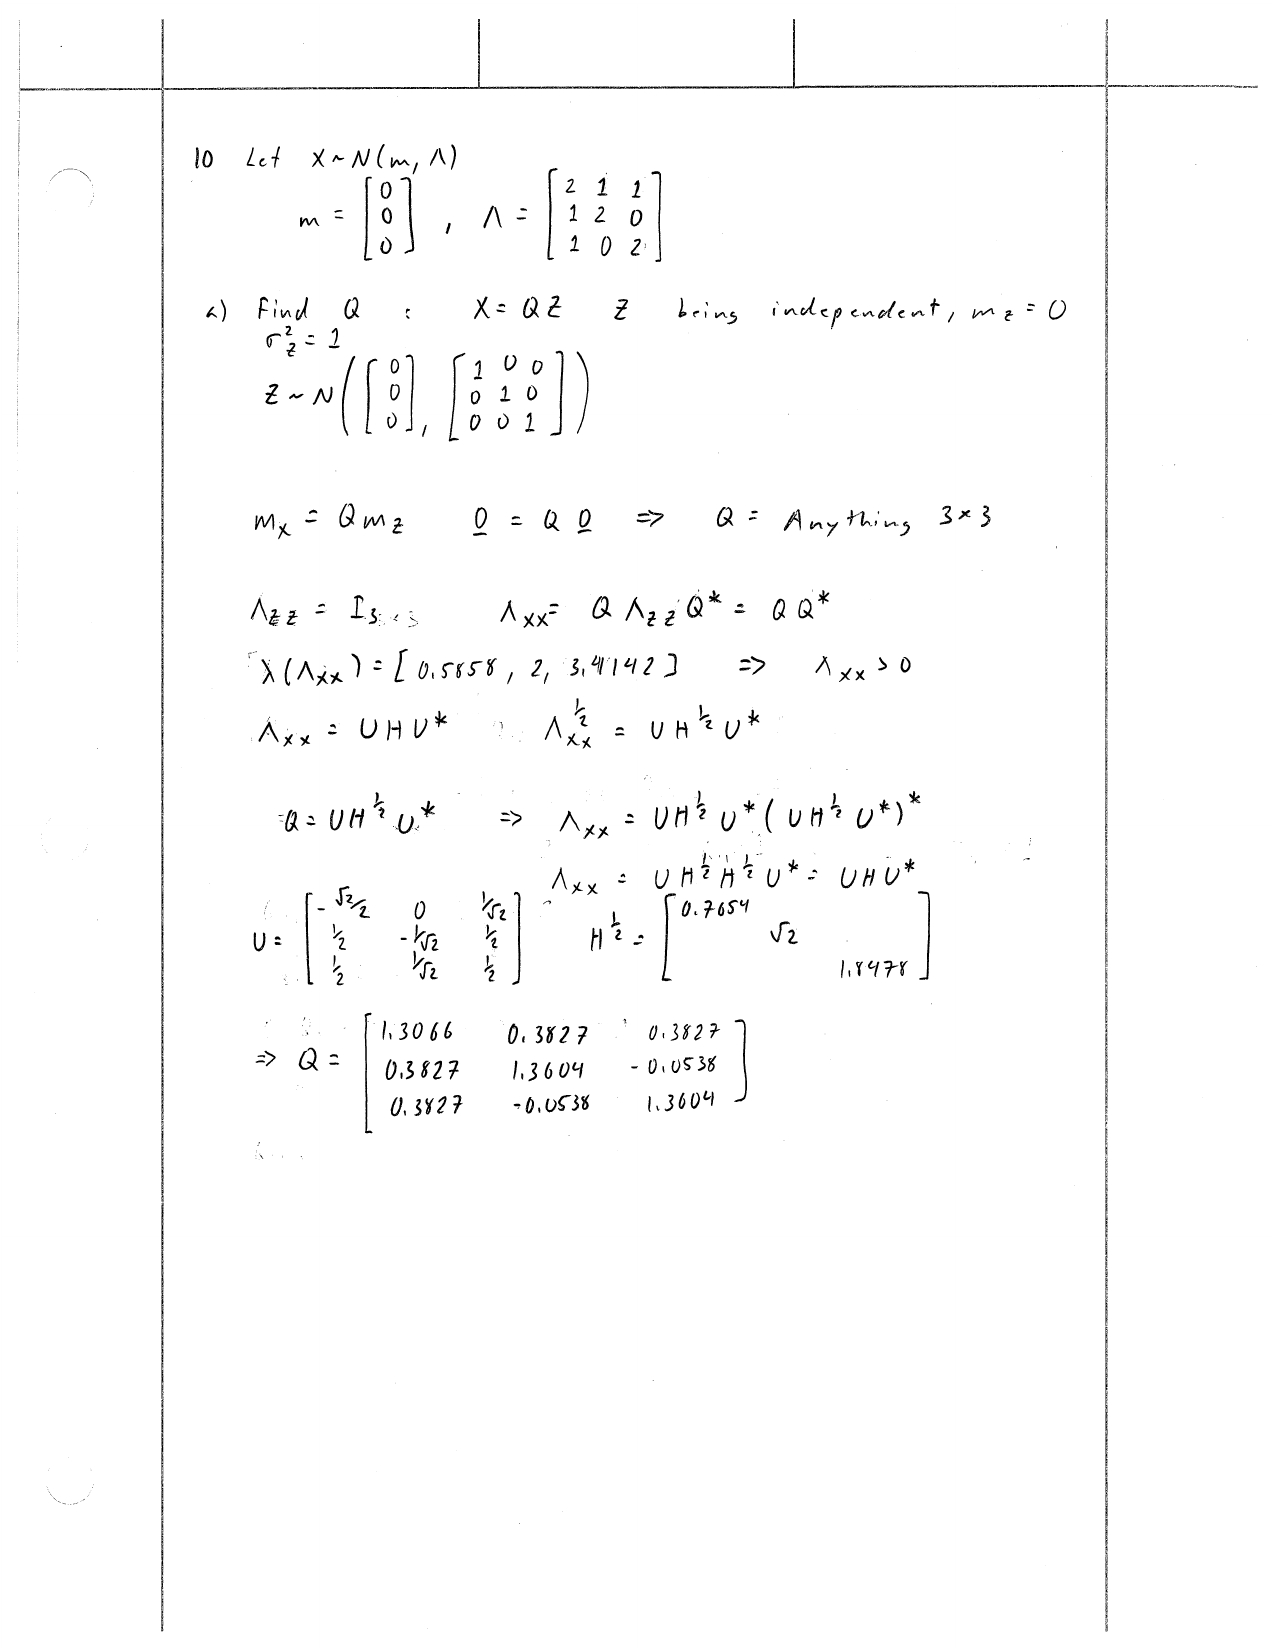 10 Let X ~ N(m, Λ)
m = [0 0 0], Λ = [2 1 1
1 2 0
1 0 2]
a) Find Q : X = QZ Z being independent, m_z = 0
σ_z^2 = 1
Z ~ N([0 0 0], [1 0 0
0 1 0
0 0 1])
m_x = Q m_z 0 = Q 0 => Q = Anything 3×3
Λ_zz = I_3×3 Λ_xx = Q Λ_zz Q* = Q Q*
λ(Λ_xx) = [0.5858, 2, 3.4142] => Λ_xx > 0
Λ_xx = U H U* Λ_xx^½ = U H^½ U*
Q = U H^½ U* => Λ_xx = U H^½ U* (U H^½ U*)*
Λ_xx = U H^½ H^½ U* = U H U*
U = [-√2/2 0 1/√2
½ -1/√2 ½
½ 1/√2 ½] H^½ = [0.7654
√2
1.8478]
=> Q = [1.3066 0.3827 0.3827
0.3827 1.3604 -0.0538
0.3827 -0.0538 1.3604]